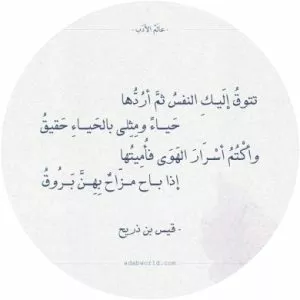 عالم الأدب
تتوقُ إلَيكِ النفسُ ثمَّ أردُّها
حَياءً ومِثلِي بالحَياءِ حَقيقُ
وأكتُمُ أسْرَارَ الهَوَى فأُمِيتُها
إذا باح مزّاحٌ بِهِنَّ بَرُوقُ
- قيس بن ذريح
adabworld.com